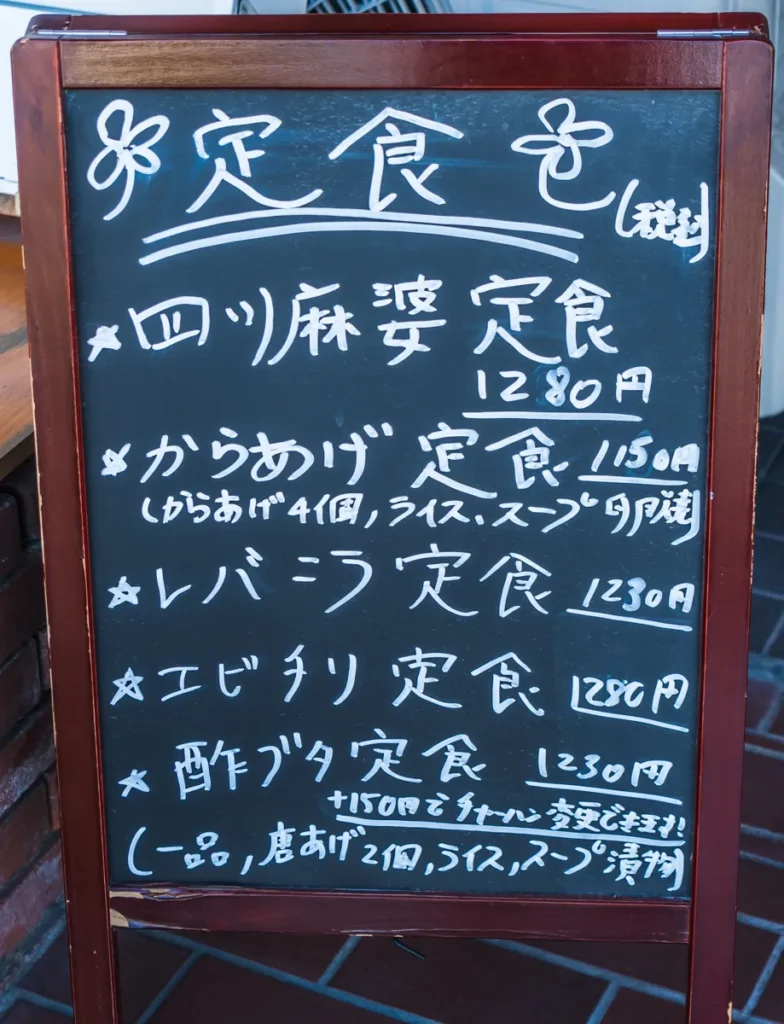 定食
(税込)
☆四ツ麻婆定食
1280円
☆からあげ定食 1150円
(からあげ4個,ライス、スープ
☆レバニラ定食 1230円
☆エビチリ定食 1280円
☆酢ブタ定食 1230円
+150円でチャーハン変更できます!
(一品,唐あげ2個,ライス,スープ漬物)